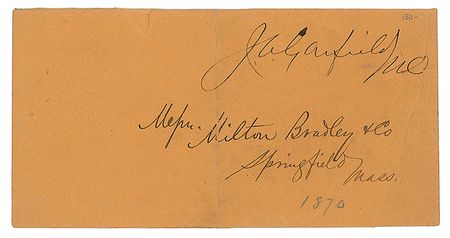 150-
J. A. Garfield
MC
Messrs. Milton Bradley & Co
Springfield
Mass.
1870